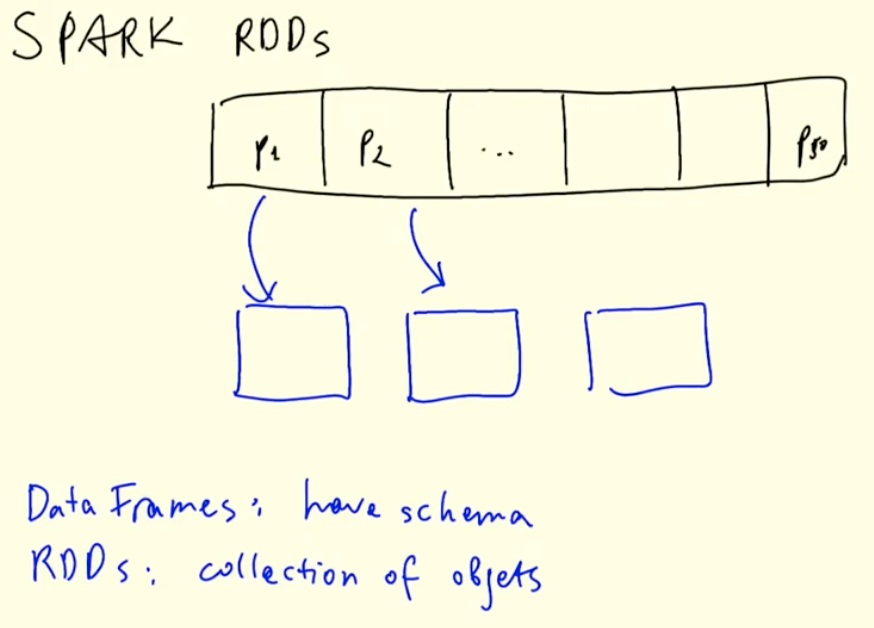 SPARK RDDs
P1 P2 ... P50
Data Frames: have schema
RDDs: collection of objets